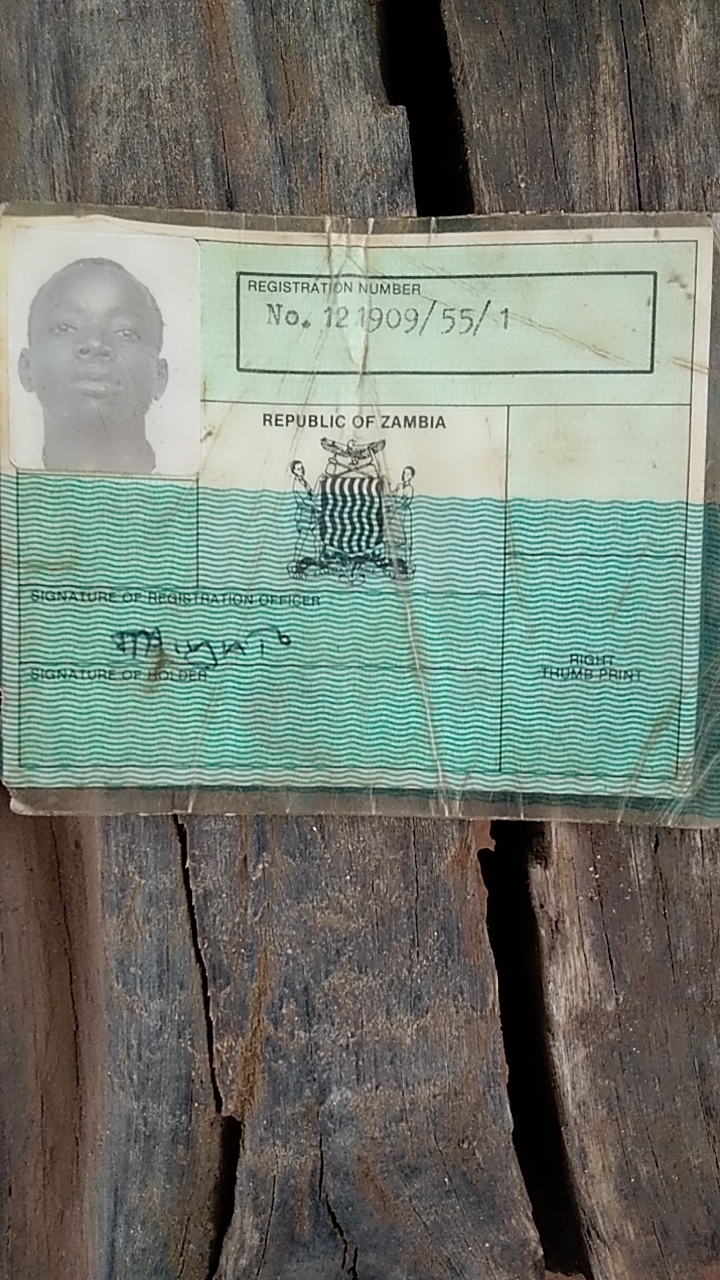 REGISTRATION NUMBER
No. 121909/55/1
REPUBLIC OF ZAMBIA
SIGNATURE OF REGISTRATION OFFICER
SIGNATURE OF HOLDER
RIGHT
THUMB PRINT